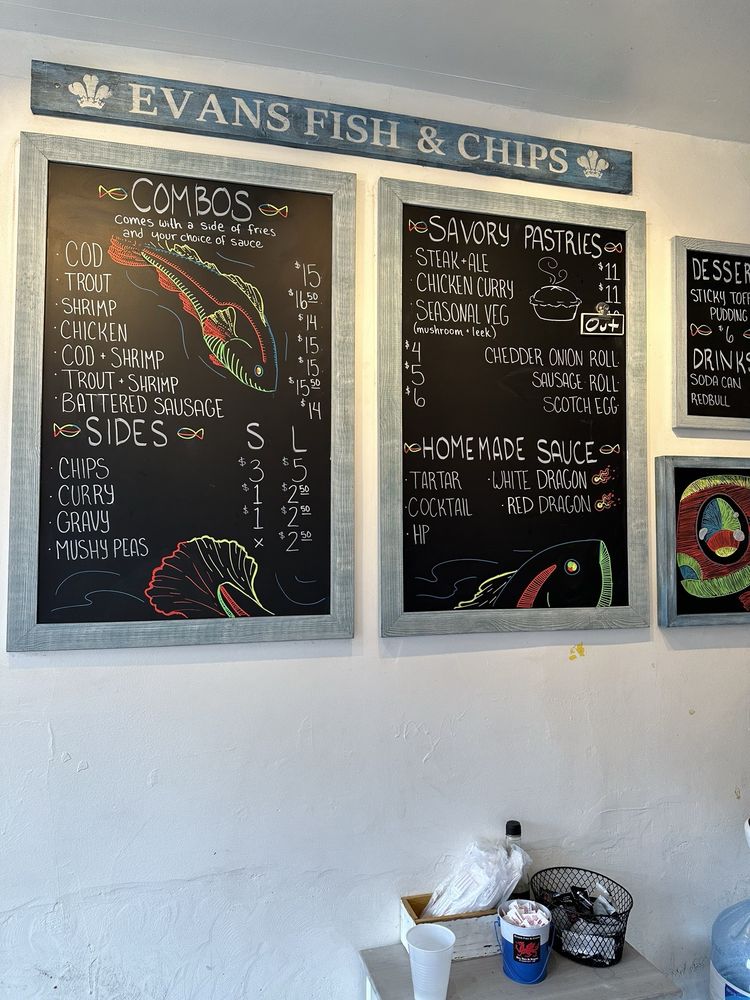 EVANS FISH & CHIPS
COMBOS
comes with a side of fries
and your choice of sauce
· COD $15
· TROUT $16⁵⁰
· SHRIMP $14
· CHICKEN $15
· COD + SHRIMP $15
· TROUT + SHRIMP $15⁵⁰
· BATTERED SAUSAGE $14
SIDES S L
· CHIPS $3 $5
· CURRY $1 $2⁵⁰
· GRAVY $1 $2⁵⁰
· MUSHY PEAS x $2⁵⁰
SAVORY PASTRIES
· STEAK + ALE $11
· CHICKEN CURRY $11
· SEASONAL VEG Out
(mushroom + leek)
$4 CHEDDER ONION ROLL
$5 SAUSAGE ROLL
$6 SCOTCH EGG
HOMEMADE SAUCE
· TARTAR · WHITE DRAGON
· COCKTAIL · RED DRAGON
· HP
DESSER
STICKY TOFF
PUDDING
$6
DRINKS
SODA CAN
REDBULL